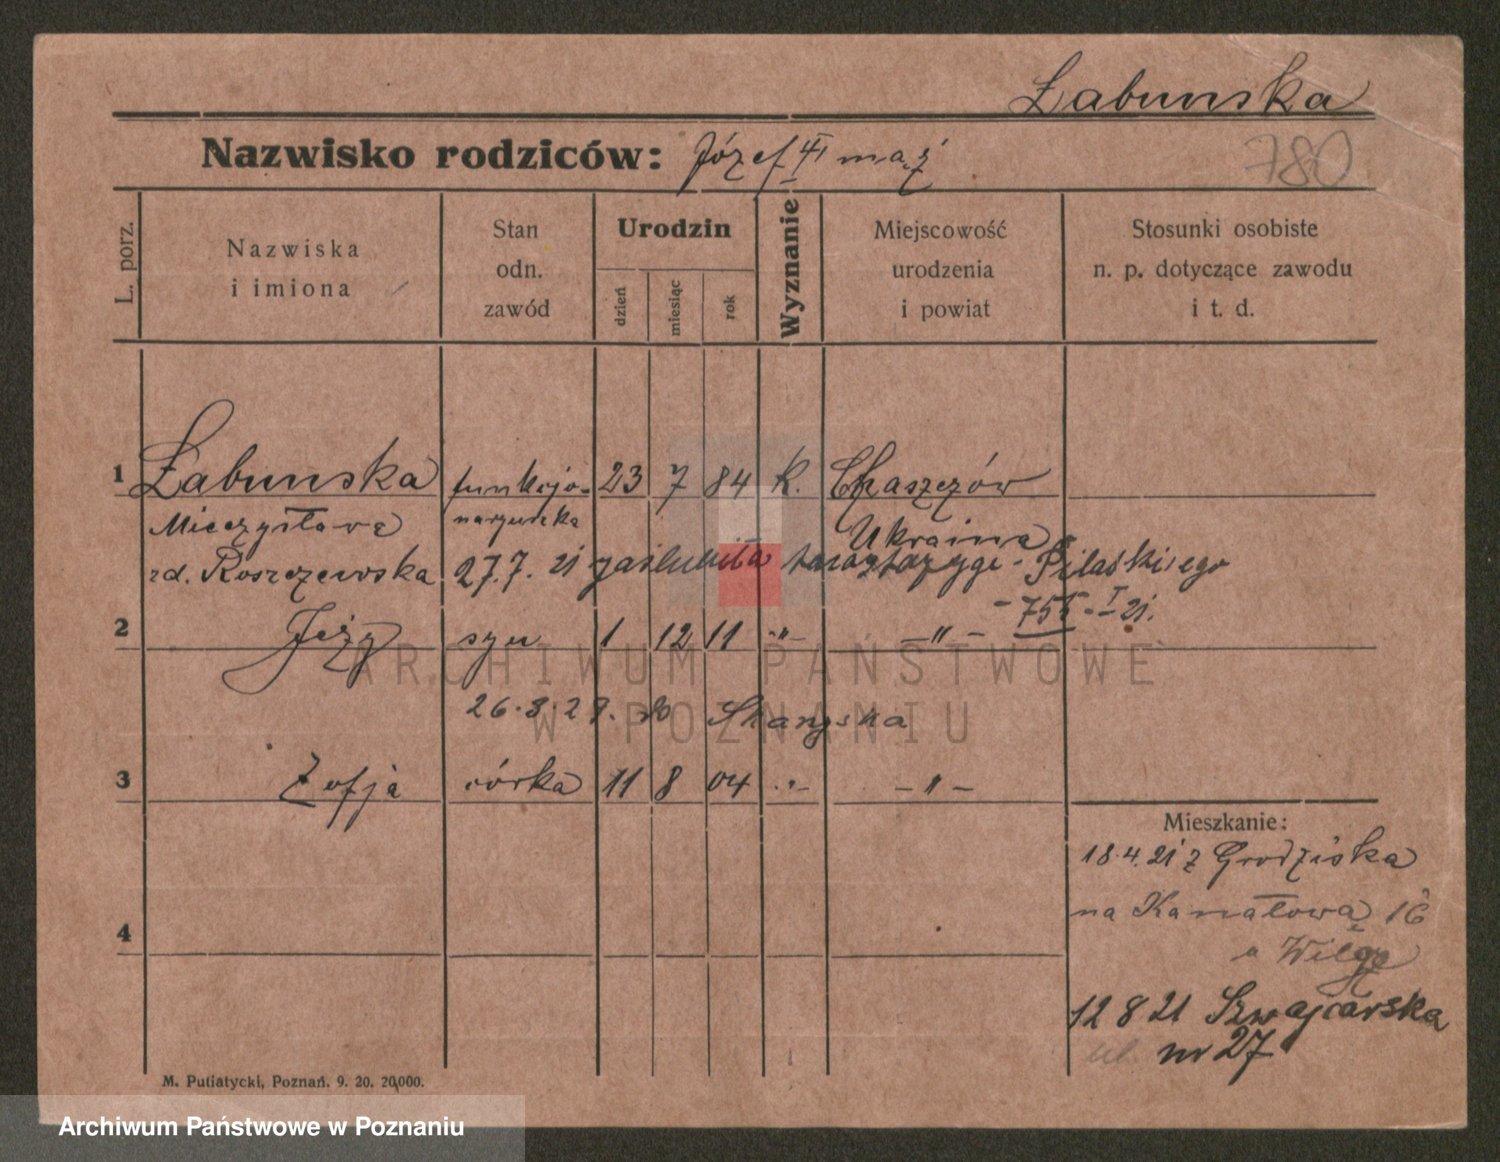 Łabunska
Nazwisko rodziców: Józef II mąż
780
L. porz.
Nazwiska
i imiona
Stan
odn.
zawód
Urodzin
dzień
miesiąc
rok
Wyznanie
Miejscowość
urodzenia
i powiat
Stosunki osobiste
n. p. dotyczące zawodu
i t. d.
1 Łabunska funkcjo- 23 7 84 k. Chaszczów
Mieczysława narjuszka Ukraina
zd. Roszczewska 27.7. 21 zaślubiła Pilaskiego
- 755 - I - 21.
2 Jeży syn 1 12 11 -"- -"-
26.3.27. do
3 Zofja córka 11 8 04 -"- -"-
Mieszkanie:
18.4.21 z Grodziska
na Kanałową 16
u Wilge
4
12 8 21 Szwajcarska
ul. nr 27
M. Putiatycki, Poznań. 9. 20. 20,000.
ARCHIWUM PAŃSTWOWE
W POZNANIU
Archiwum Państwowe w Poznaniu